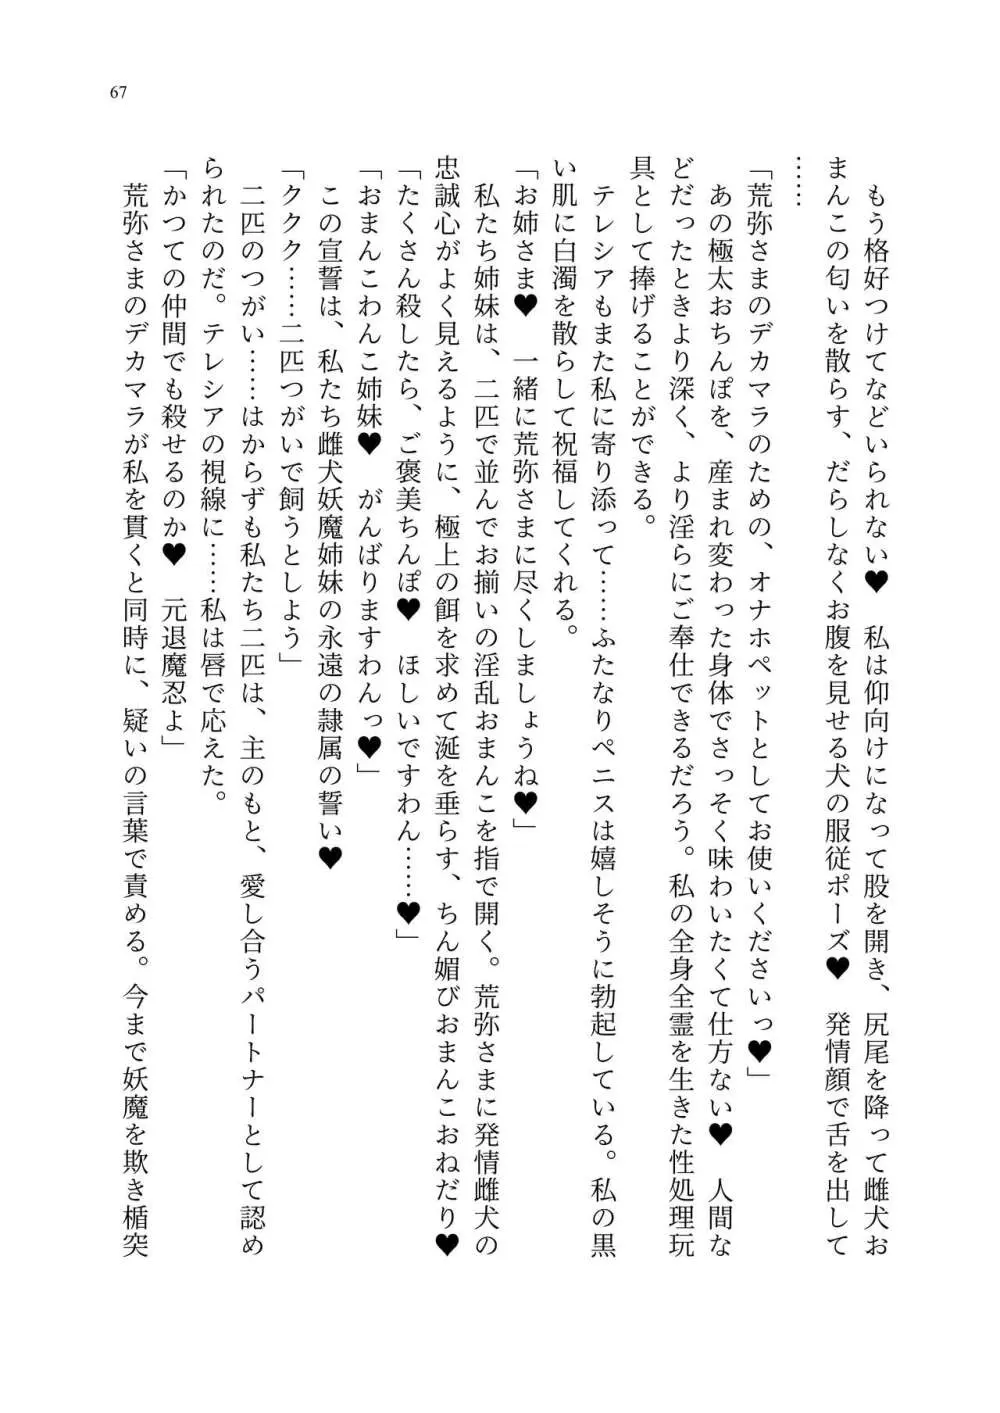 67
　もう格好つけてなどいられない♥　私は仰向けになって股を開き、尻尾を降って雌犬お
まんこの匂いを散らす、だらしなくお腹を見せる犬の服従ポーズ♥　発情顔で舌を出して
……
「荒弥さまのデカマラのための、オナホペットとしてお使いくださいっ♥」
　あの極太おちんぽを、産まれ変わった身体でさっそく味わいたくて仕方ない♥　人間な
どだったときより深く、より淫らにご奉仕できるだろう。私の全身全霊を生きた性処理玩
具として捧げることができる。
　テレシアもまた私に寄り添って……ふたなりペニスは嬉しそうに勃起している。私の黒
い肌に白濁を散らして祝福してくれる。
「お姉さま♥　一緒に荒弥さまに尽くしましょうね♥」
　私たち姉妹は、二匹で並んでお揃いの淫乱おまんこを指で開く。荒弥さまに発情雌犬の
忠誠心がよく見えるように、極上の餌を求めて涎を垂らす、ちん媚びおまんこおねだり♥
「たくさん殺したら、ご褒美ちんぽ♥　ほしいですわん……♥」
「おまんこわんこ姉妹♥　がんばりますわんっ♥」
　この宣誓は、私たち雌犬妖魔姉妹の永遠の隷属の誓い♥
「ククク……二匹つがいで飼うとしよう」
　二匹のつがい……はからずも私たち二匹は、主のもと、愛し合うパートナーとして認め
られたのだ。テレシアの視線に……私は唇で応えた。
「かつての仲間でも殺せるのか♥　元退魔忍よ」
　荒弥さまのデカマラが私を貫くと同時に、疑いの言葉で責める。今まで妖魔を欺き楯突